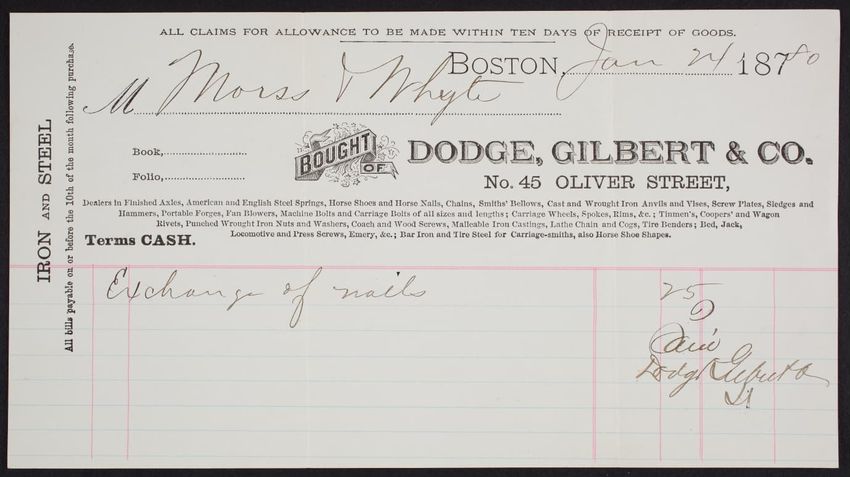 ALL CLAIMS FOR ALLOWANCE TO BE MADE WITHIN TEN DAYS OF RECEIPT OF GOODS.
BOSTON, Jan 24 1880
M Morss & Whyte
Book,
Folio,
BOUGHT OF
DODGE, GILBERT & CO.
No. 45 OLIVER STREET,
Dealers in Finished Axles, American and English Steel Springs, Horse Shoes and Horse Nails, Chains, Smiths' Bellows, Cast and Wrought Iron Anvils and Vises, Screw Plates, Sledges and
Hammers, Portable Forges, Fan Blowers, Machine Bolts and Carriage Bolts of all sizes and lengths; Carriage Wheels, Spokes, Rims, &c.; Tinmen's, Coopers' and Wagon
Rivets, Punched Wrought Iron Nuts and Washers, Coach and Wood Screws, Malleable Iron Castings, Lathe Chain and Cogs, Tire Benders; Bed, Jack,
Locomotive and Press Screws, Emery, &c.; Bar Iron and Tire Steel for Carriage-smiths, also Horse Shoe Shapes.
Terms CASH.
IRON AND STEEL
All bills payable on or before the 10th of the month following purchase.
Exchange of nails 25
Paid
Dodge Gilbert & Co